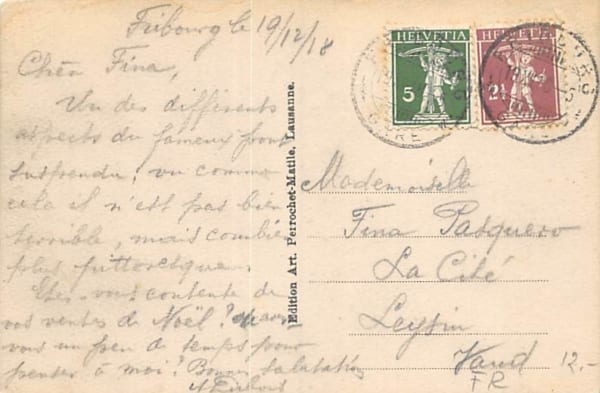 Fribourg le 19/12/18
Chère Fina,
Un des différents
aspects du fameux pont
suspendu, vu comme
cela il n'est pas bien
terrible, mais combien
plus pittoresque.
Etes-vous contente de
vos ventes de Noël?
vous un peu de temps pour
penser à moi? Bonnes salutations
A Dubois
Edition Art. Perrochet-Matile, Lausanne.
HELVETIA
5
HELVETIA
2½
Mademoiselle
Fina Pasquero
La Cité
Leysin
Vaud
FR
12.-